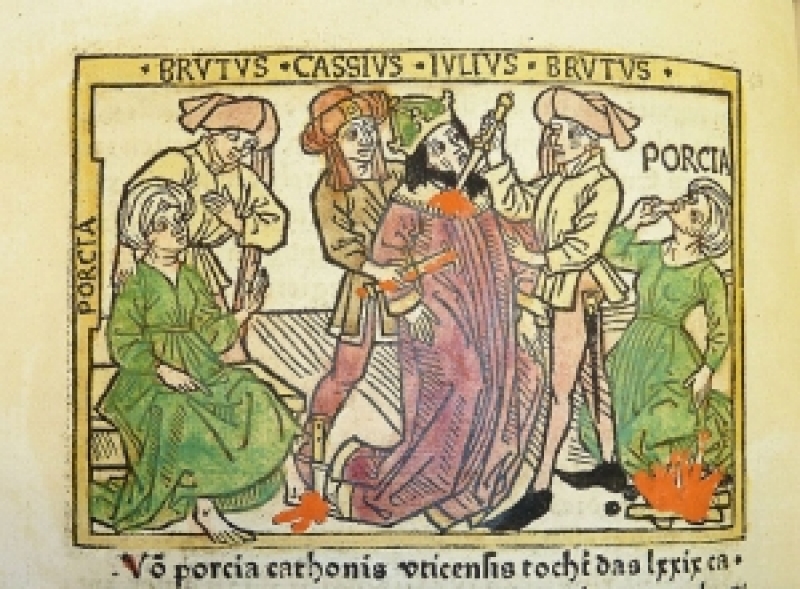 · BRVTVS · CASSIVS · IVLIVS · BRVTVS ·
PORCIA
PORCIA
Vō porcia cathonis vticensis tocht̄ das lxxix ca·